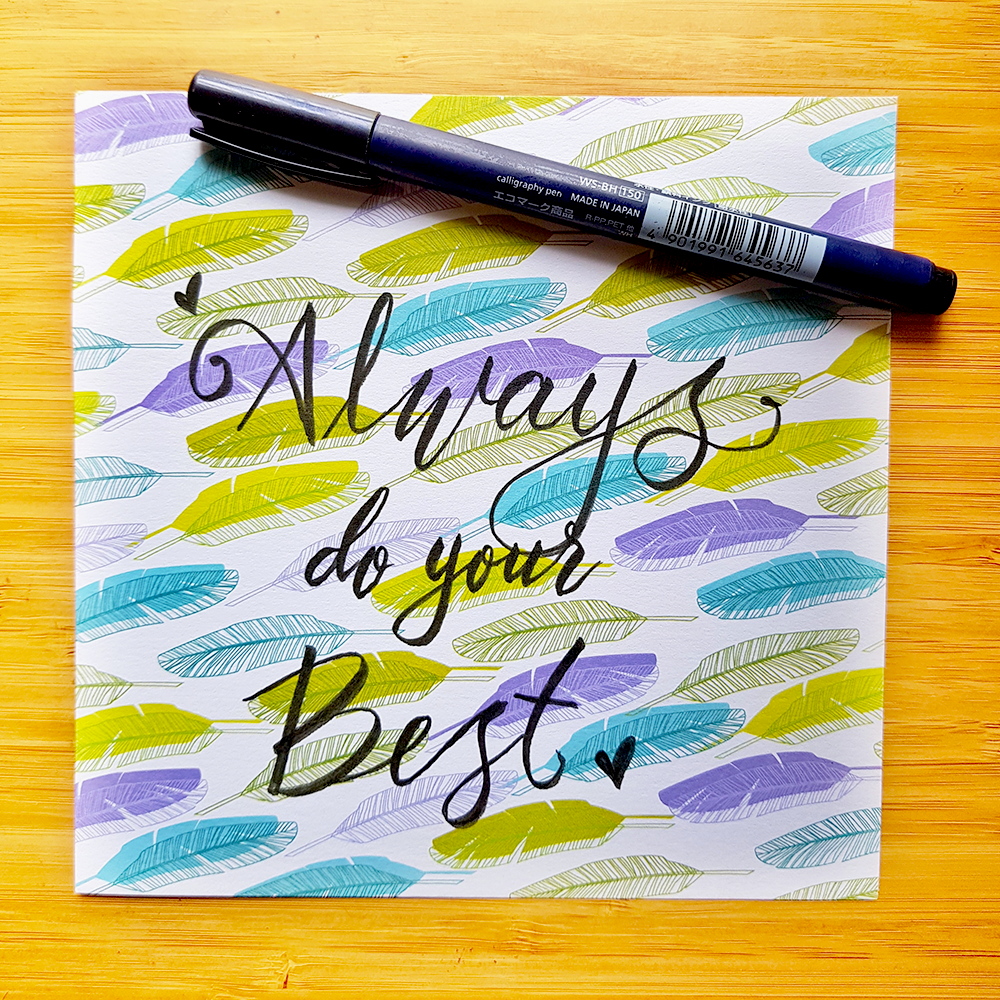 WS-BH[150]
calligraphy pen MADE IN JAPAN
エコマーク商品 R-PP,PET 他
4 901991 645637
Always
do your
Best.